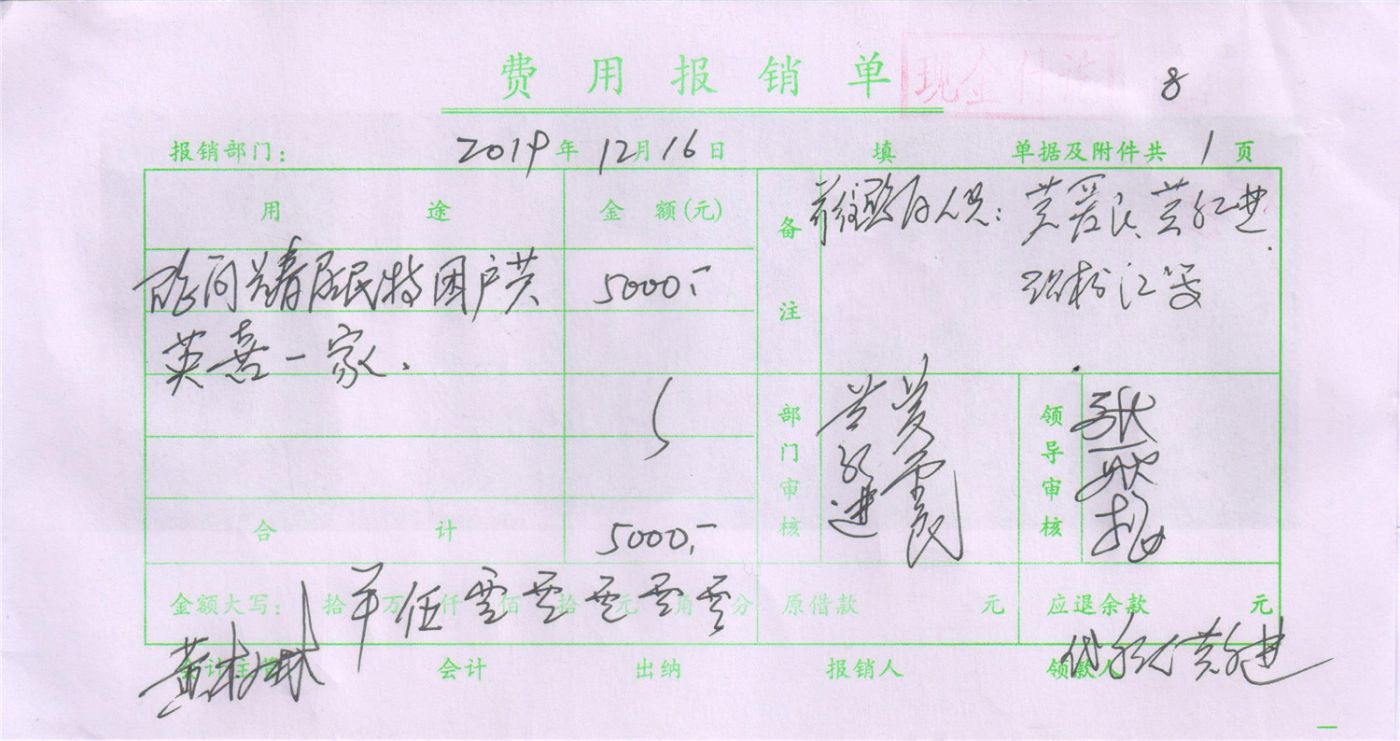 费用报销单
现金付讫
8
报销部门： 2019年12月16日 填 单据及附件共 1 页
用途 金额(元) 备注
慰问 居民特困户黄 5000.-
英喜一家.
前往慰问人员: 黄爱民、黄红进、
合计 5000.-
部门审核
领导审核
金额大写： 拾 万 伍仟 零佰 零拾 零元 零角 零分 原借款 元 应退余款 元
会计 出纳 报销人 领款人
代领人 黄红进